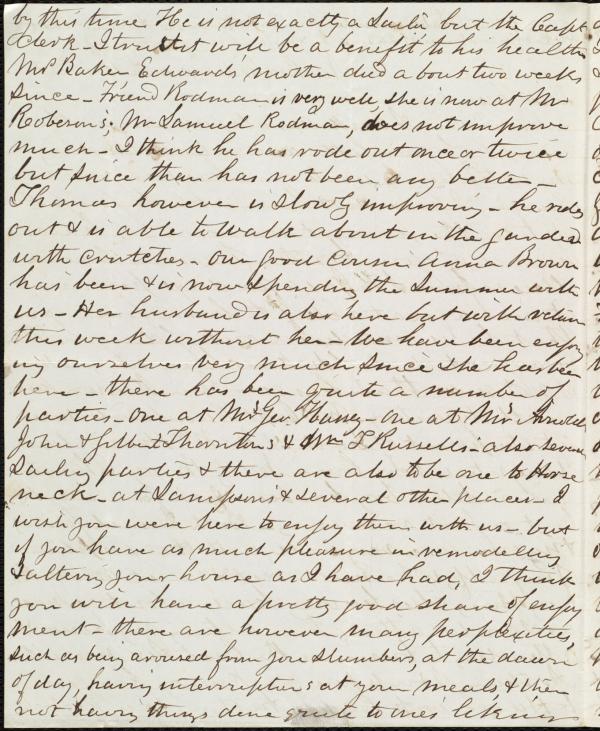 by this time. He is not exactly a Sailor but the Capt
clerk - I trust it will be a benefit to his health
Mrs Baker Edwards' mother died about two weeks
since - Friend Rodman is very well, she is now at Mr
Roberson's; Mr Samuel Rodman, does not improve
much - I think he has rode out once or twice
but since than has not been any better -
Thomas however is slowly improving - he rides
out & is able to walk about in the garden
with crutches - our good cousin Anna Brown
has been & is now spending the Summer with
us - Her husband is also here but will return
this week without her - We have been enjoy
ing ourselves very much since she has been
here - there has been quite a number of
parties - one at Mrs Geo. Hussey - one at Mrs Arnolds
John & Gilbert Thorntons & Wm T Russells - also several
Sailing parties & there are also to be one to Horse
neck - at Sampson's & several other places - I
wish you were here to enjoy them with us - but
if you have as much pleasure in remodelling
& altering your house as I have had, I think
you will have a pretty good share of enjoy
ment - there are however many perplexities,
such as being aroused from you slumbers, at the dawn
of day, having interruptions at your meals, & then
not having things done quite to ones liking